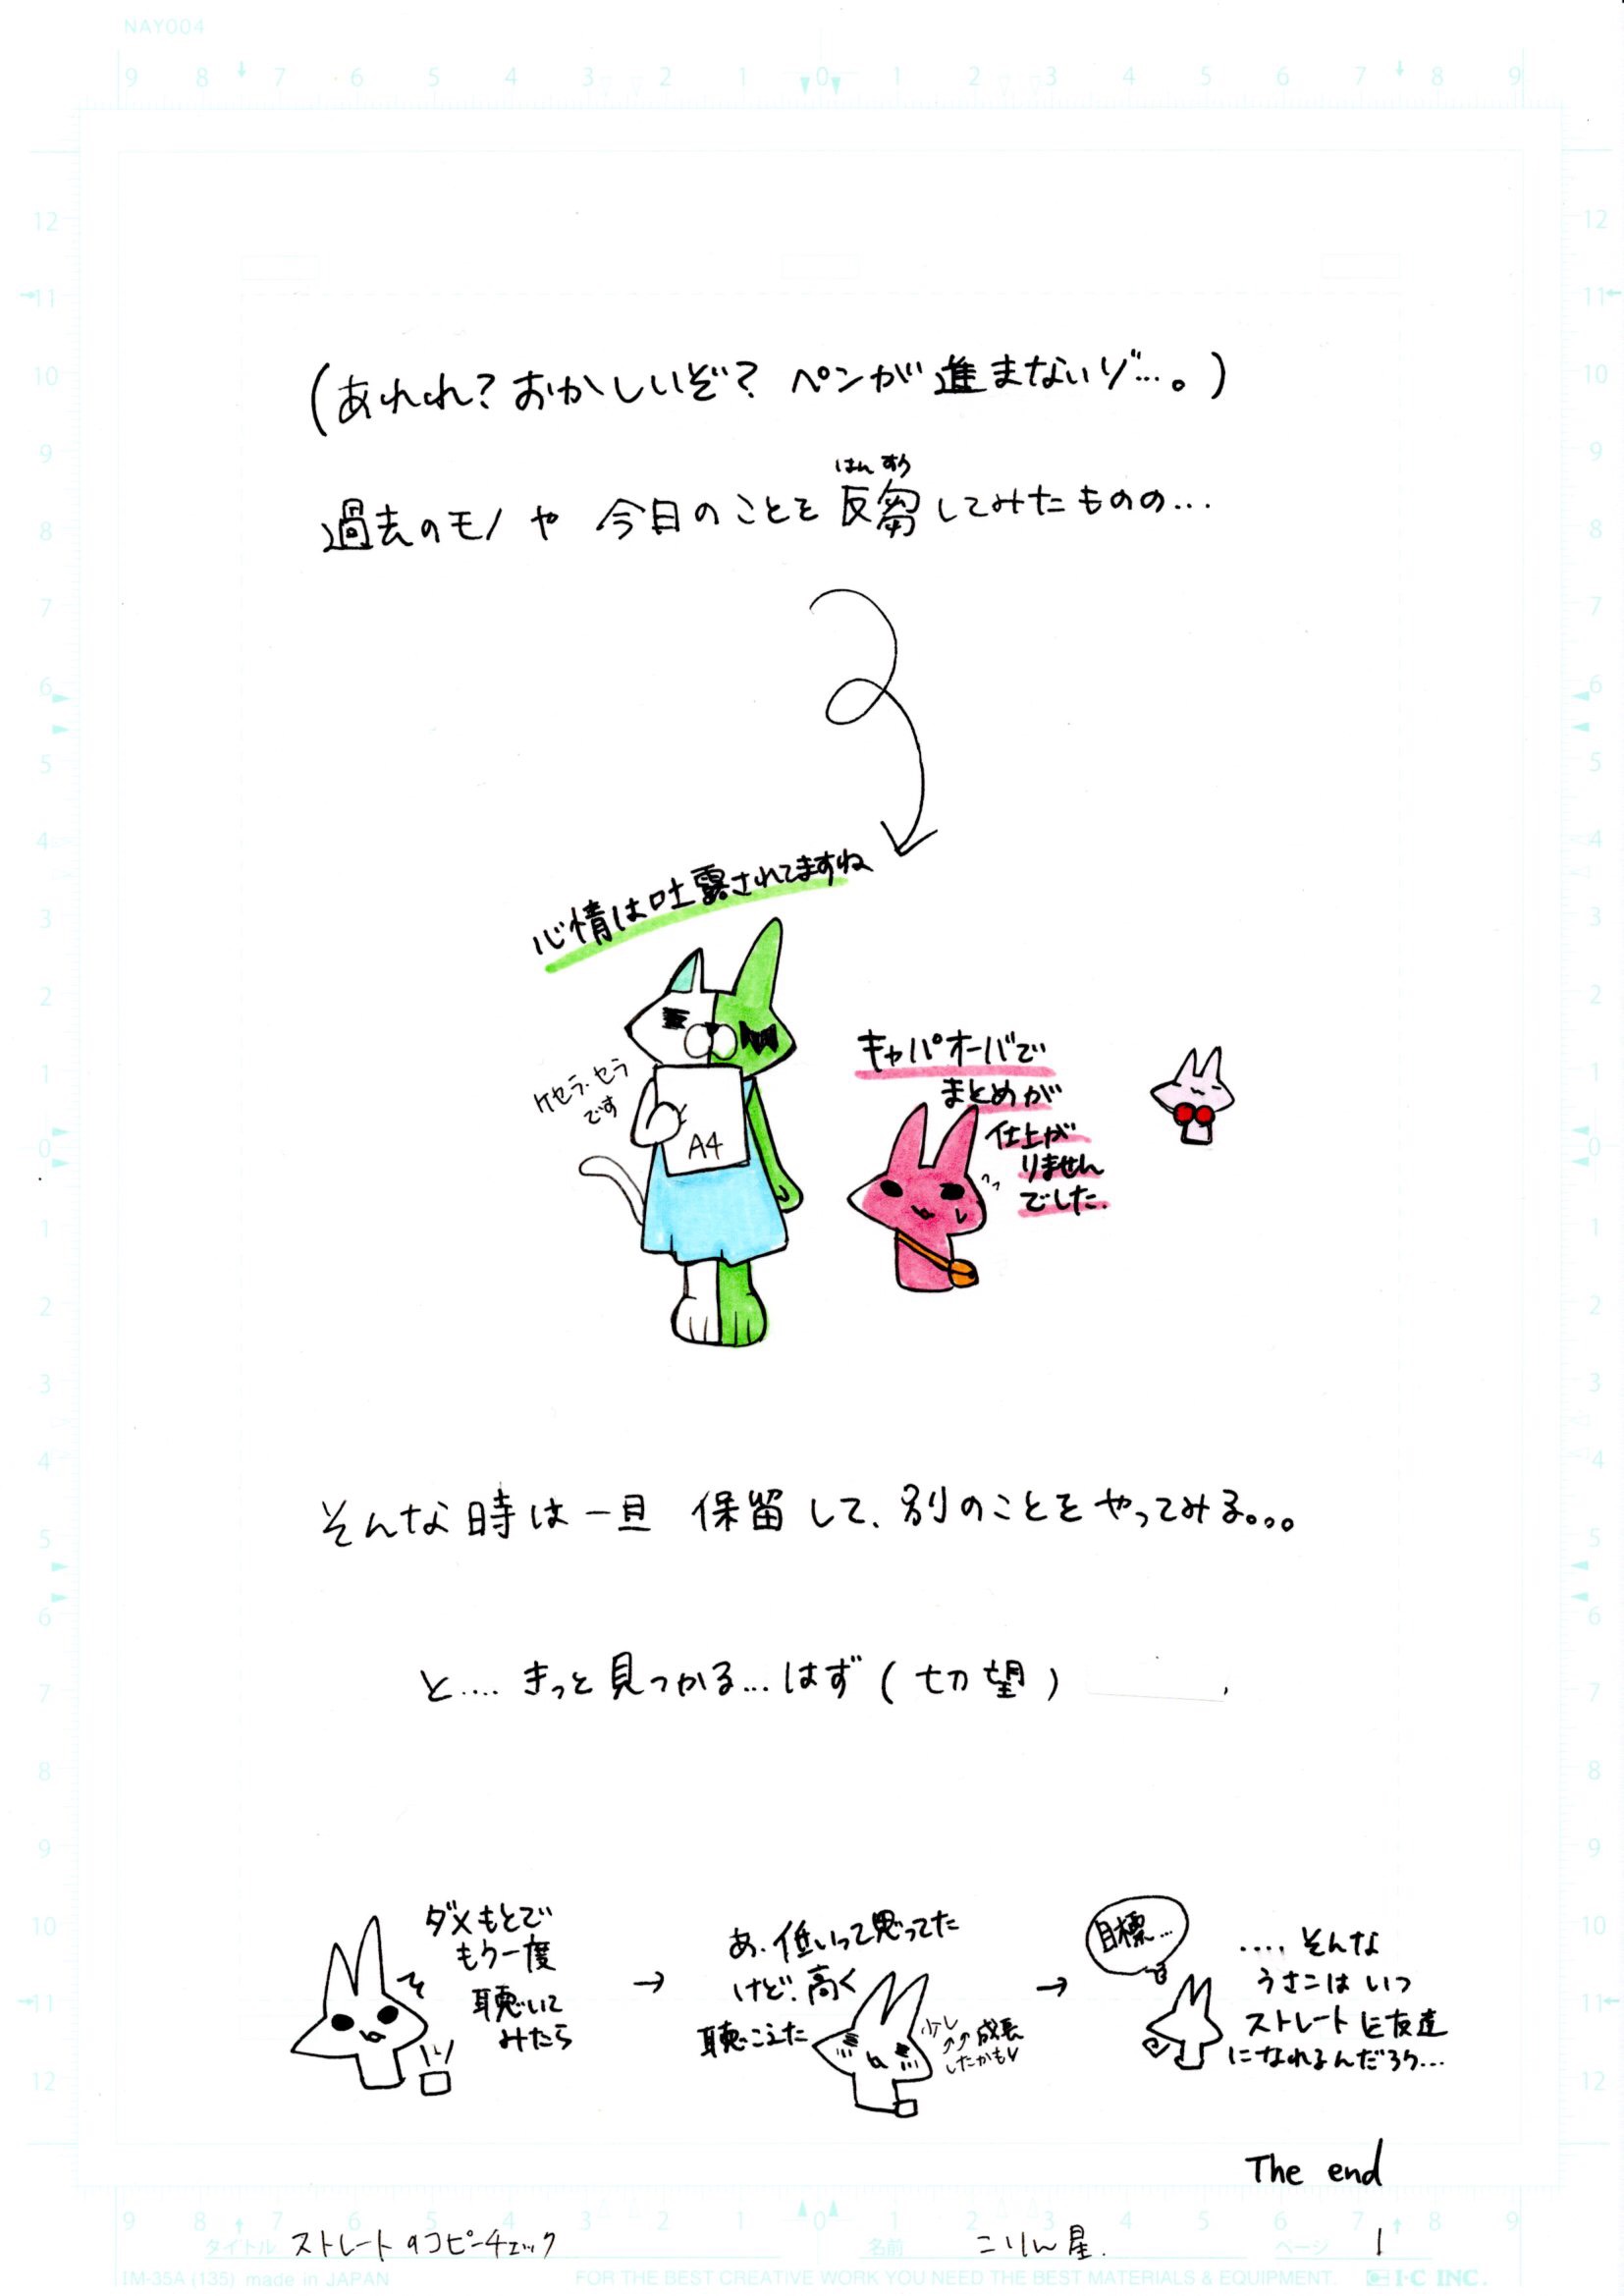 NAY004
9 8 7 6 5 4 3 2 1 0 1 2 3 4 5 6 7 8 9
(あれれ?おかしいぞ? ペンが進まないゾ…。)
はんすう
過去のモノや 今日のことを反芻してみたものの…
心情は吐露されてますね
ケセラ・セラ
です
A4
キャパオーバで
まとめが
仕上が
りません
でした.
そんな時は一旦 保留して、別のことをやってみる。。。
と….きっと見つかる…はず(切望)
ダメもとで
もう一度
聴いて
みたら
→
あ、低いって思ってた
けど、高く
聴こえた
少し
↑↑成長
したかも
→
目標…
….そんな
うさこはいつ
ストレートと友達
になれるんだろう…
The end
9 8 7 6 5 4 3 2 1 0 1 2 3 4 5 6 7 8 9
タイトル ストレートのコピーチェック
名前 こりん星.
ページ 1
IM-35A (135) made in JAPAN
FOR THE BEST CREATIVE WORK YOU NEED THE BEST MATERIALS & EQUIPMENT.
I·C INC.